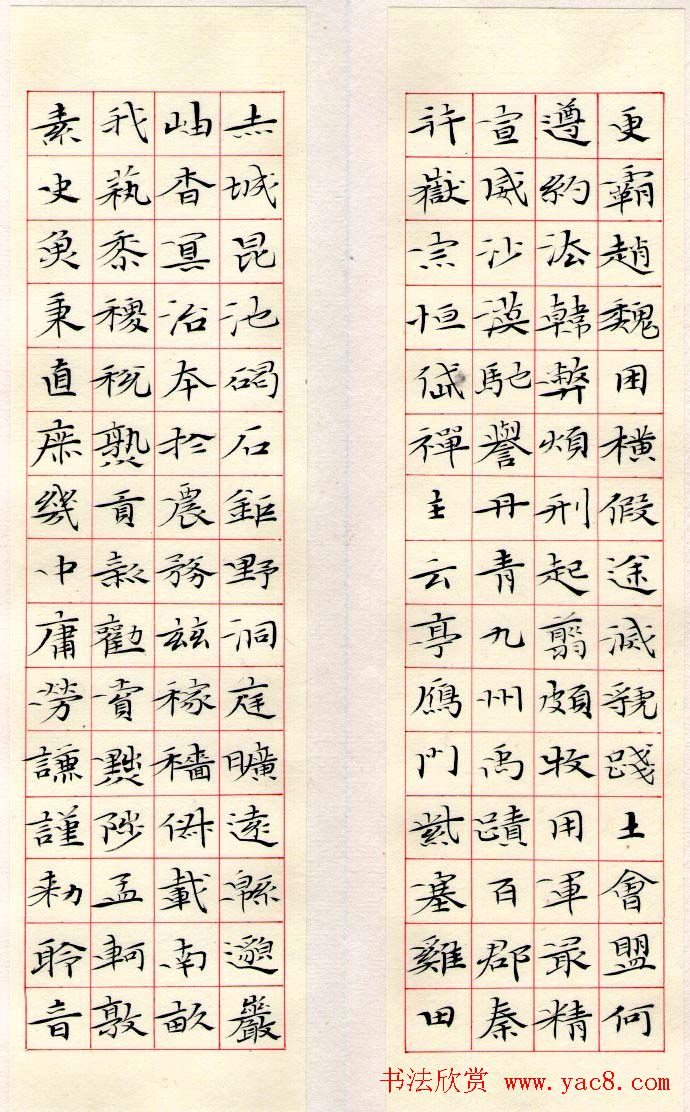 更霸趙魏困橫假途滅虢踐土會盟何
遵約法韓弊煩刑起翦頗牧用軍最精
宣威沙漠馳譽丹青九州禹蹟百郡秦
并嶽宗恒岱禪主云亭鴈門紫塞雞田
赤城昆池碣石鉅野洞庭曠遠緜邈巖
岫杳冥治本於農務茲稼穡俶載南畝
我藝黍稷稅熟貢新勸賞黜陟孟軻敦
素史魚秉直庶幾中庸勞謙謹勑聆音
书法欣赏 www.yac8.com